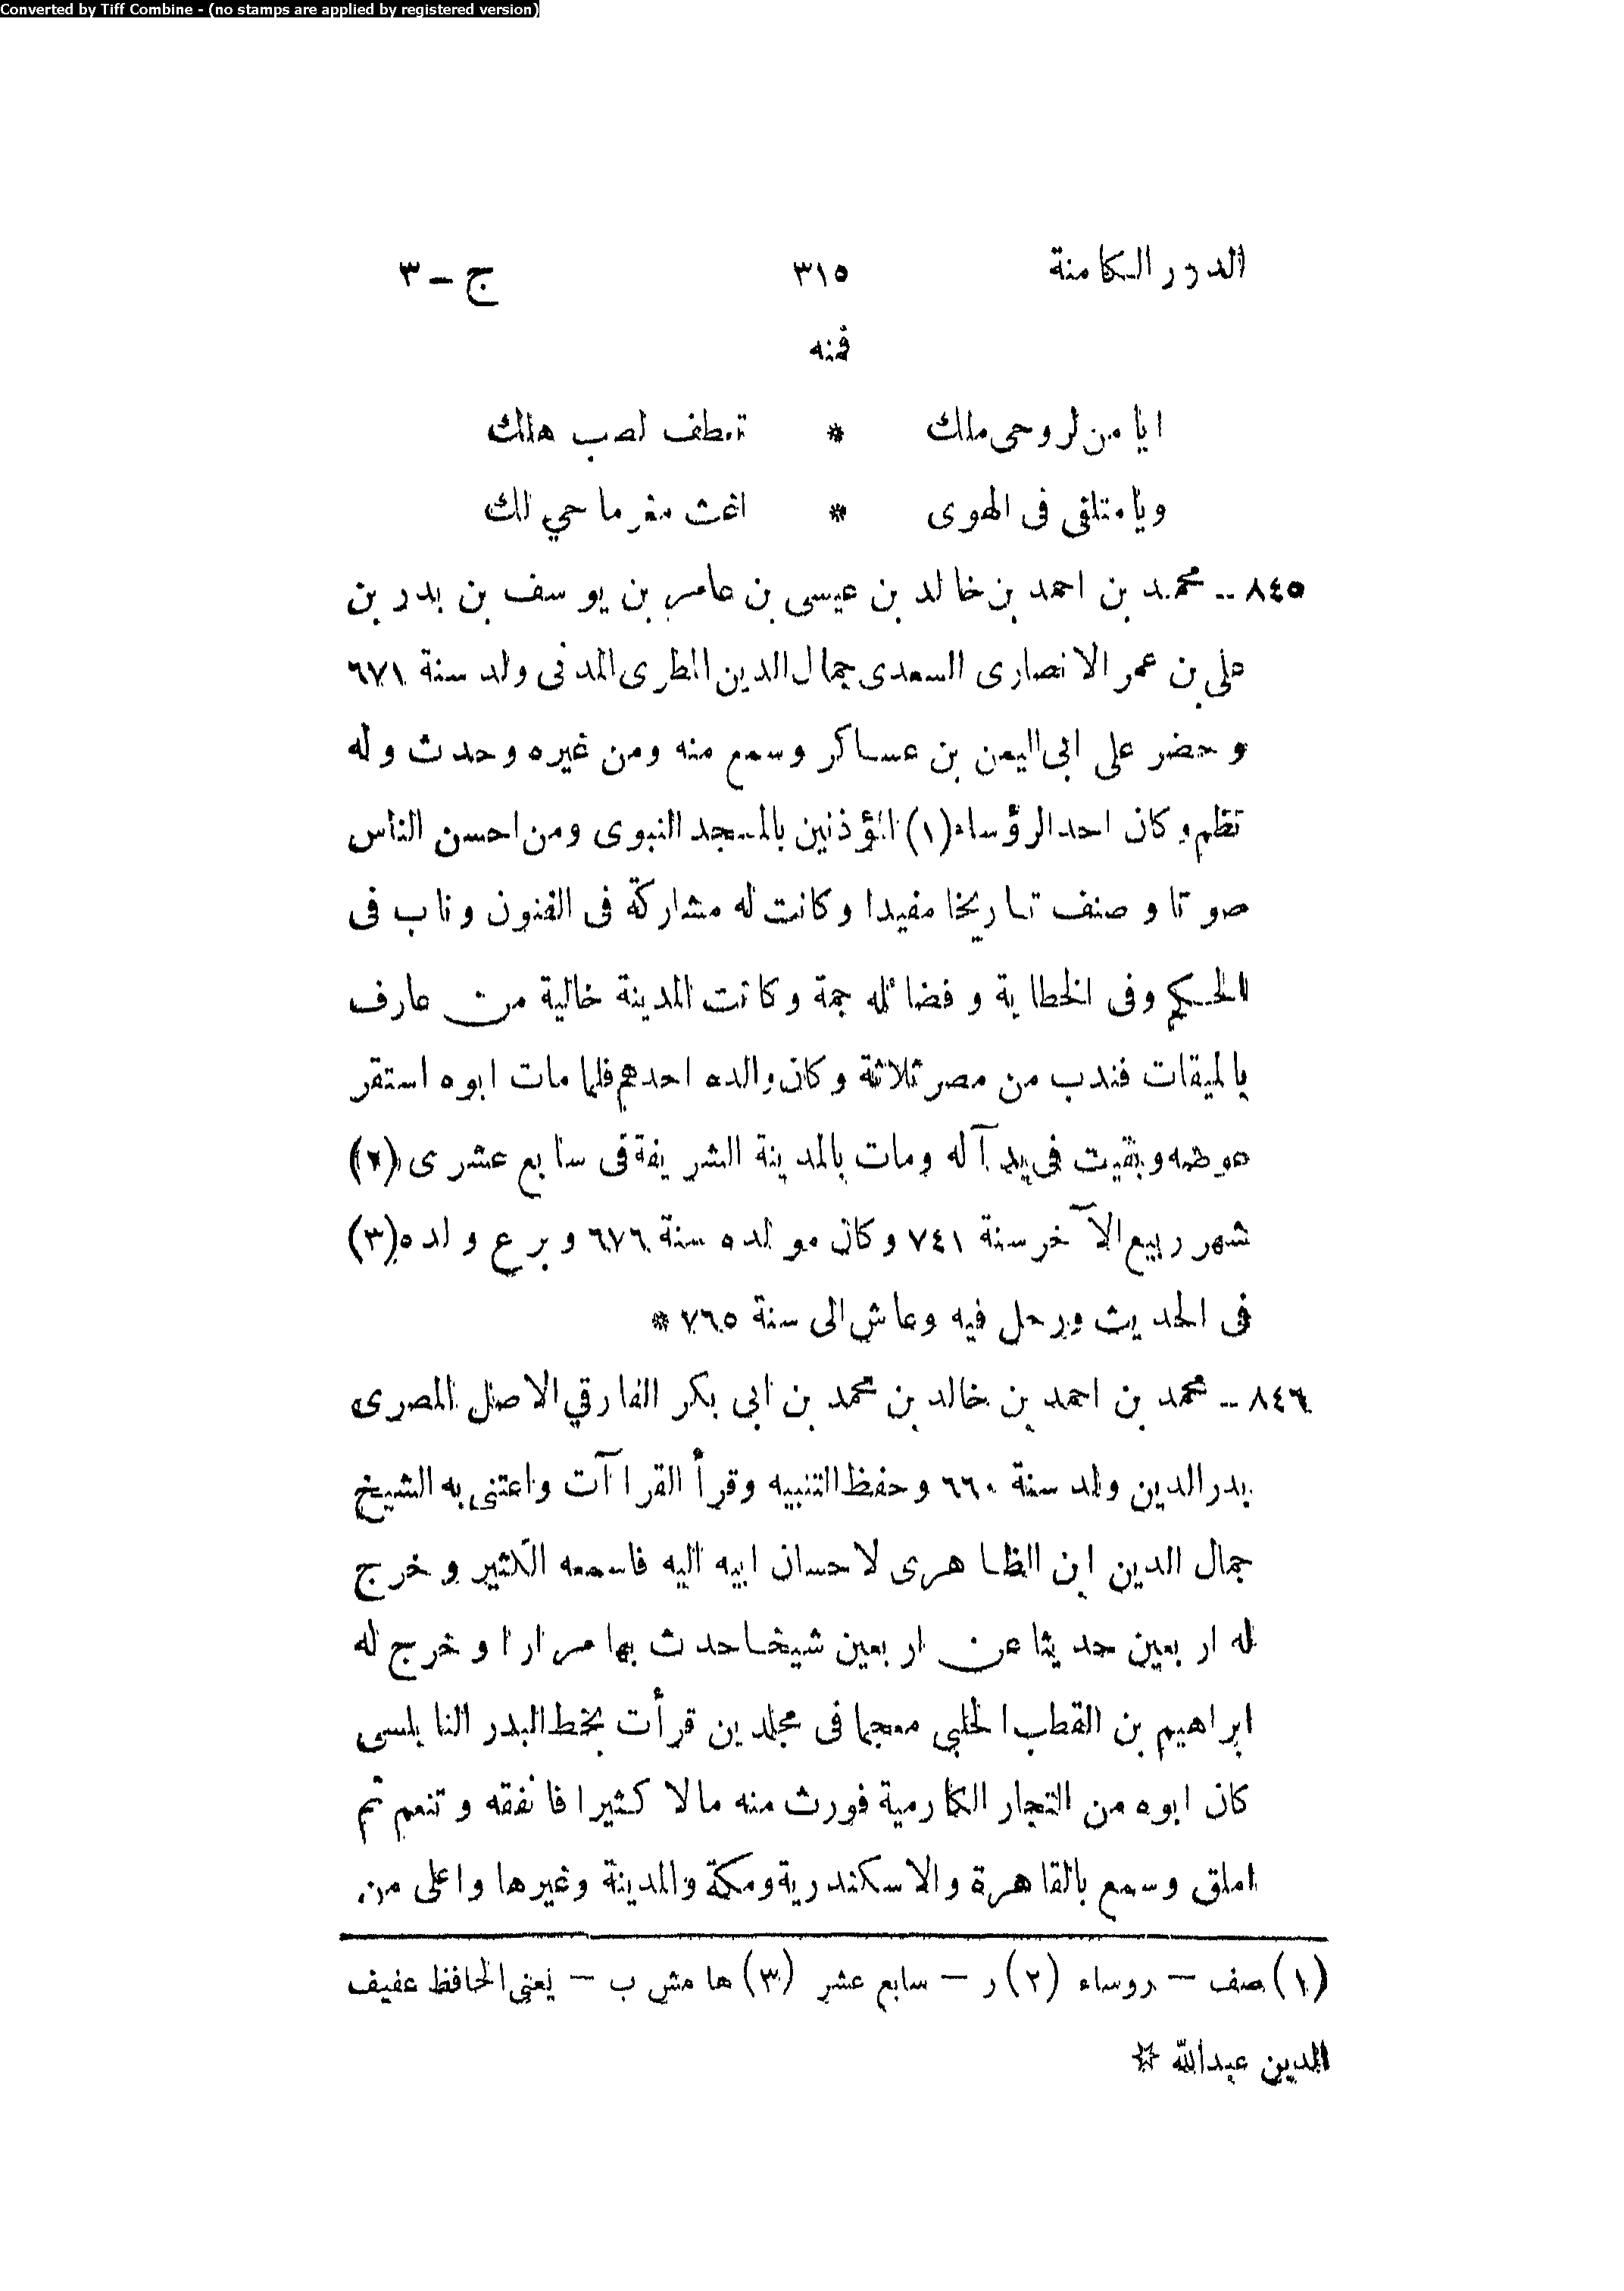 Converted by Tiff Combine - (no stamps are applied by registered version)
الدرر الكامنة ٣١٥ ج – ٣
فمنه
ايا من لروحى ملك * تعطف لصب هلك
ويا متلفى فى الهوى * اغث مغرما حي لك
٨٤٥ – محمد بن احمد بن خالد بن عيسى بن عامر بن يوسف بن بدر بن
على بن عمر الانصارى السعدى جمال الدين المطرى المدنى ولد سنة ٦٧١
وحضر على ابى اليمن بن عساكر وسمع منه ومن غيره وحدث وله
نظم وكان احد الرؤساء (١) المؤذنين بالمسجد النبوى ومن احسن الناس
صوتا وصنف تاريخا مفيدا وكانت له مشاركة فى الفنون وناب فى
الحكم وفى الخطابة وفضائله جمة وكانت المدينة خالية من عارف
بالميقات فندب من مصر ثلاثة وكان والده احدهم فلما مات ابوه استقر
عوضه وبقيت فى يد آله ومات بالمدينة الشريفة فى سابع عشرى (٢)
شهر ربيع الآخر سنة ٧٤١ وكان مولده سنة ٦٧٦ وبرع ولده (٣)
فى الحديث ورحل فيه وعاش الى سنة ٧٦٥ *
٨٤٦ – محمد بن احمد بن خالد بن محمد بن ابى بكر الفارقي الاصل المصرى
بدر الدين ولد سنة ٦٦٠ وحفظ التنبيه وقرأ القراآت واعتنى به الشيخ
جمال الدين ابن الظاهرى لاحسان ابيه اليه فاسمعه الكثير وخرج
له اربعين حديثا عن اربعين شيخا حدث بها مرارا وخرج له
ابراهيم بن القطب الحلبي معجما فى مجلدين قرأت بخط البدر النابلسى
كان ابوه من التجار الكارمية فورث منه مالا كثيرا فانفقه وتنعم ثم
املق وسمع بالقاهرة والاسكندرية ومكة والمدينة وغيرها واعلى من
(١) صف – روساء (٢) ر – سابع عشر (٣) هامش ب – يعنى الحافظ عفيف
الدين عبدالله ☆